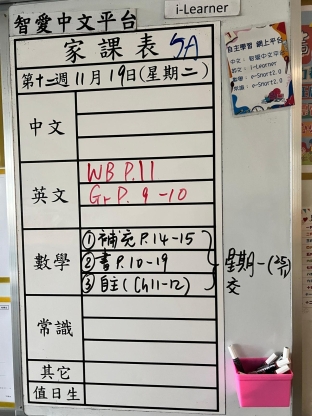 智愛中文平台
i-Learner
家課表 5A
第十二週 11月19日(星期二)
中文
英文
WB P.11
Gr P. 9 -10
數學
① 補充 P.14-15
② 書 P.10-19
③ 自主 (Ch11-12)
星期一(25/11)
交
常識
其它
值日生
自主學習 網上平台
中文: 智愛中文平台
英文: i-Learner
數學: e-Smart2.0
常識: e-Smart2.0